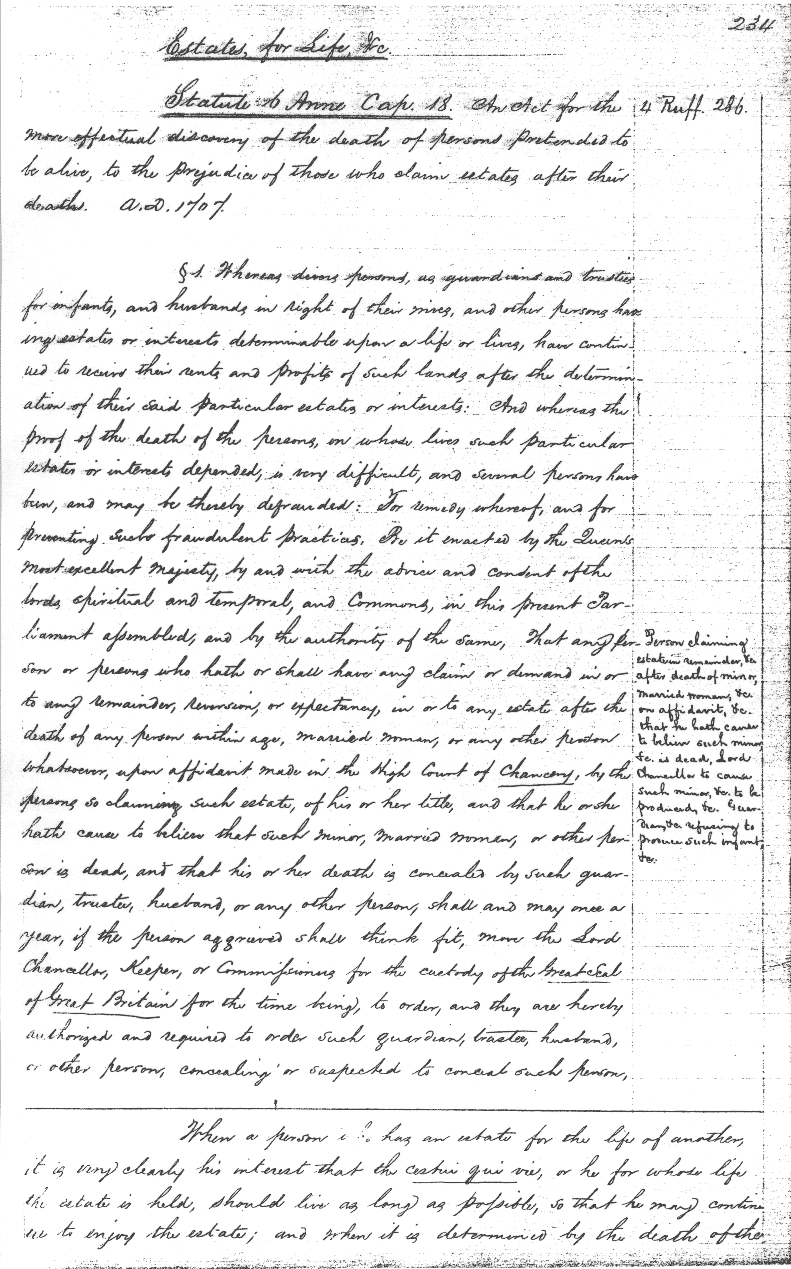 234
Estates, for Life, &c.
Statute 6 Anne Cap. 18. An Act for the
4 Ruff. 286.
more effectual discovery of the death of persons pretended to
be alive, to the prejudice of those who claim estates after their
deaths. A.D. 1707.
§ 1. Whereas divers persons, as guardians and trustees
for infants, and husbands in right of their wives, and other persons hav-
ing estates or interests determinable upon a life or lives, have contin-
ued to receive their rents and profits of such lands after the determin-
ation of their said particular estates or interests: And whereas the
proof of the death of the persons, on whose lives such particular
estates or interests depended, is very difficult, and several persons have
been, and may be thereby defrauded: For remedy whereof, and for
preventing such fraudulent practices. Be it enacted by the Queen's
most excellent Majesty, by and with the advice and consent of the
lords spiritual and temporal, and Commons, in this present Par-
liament assembled, and by the authority of the same, That any per-
son or persons who hath or shall have any claim or demand in or
to any remainder, reversion, or expectancy, in or to any estate after the
death of any person within age, married woman, or any other person
whatsoever, upon affidavit made in the High Court of Chancery, by the
persons so claiming such estate, of his or her title, and that he or she
hath cause to believe that such minor, married woman, or other per-
son is dead, and that his or her death is concealed by such guar-
dian, trustee, husband, or any other person, shall and may once a
year, if the person aggrieved shall think fit, move the Lord
Chancellor, Keeper, or Commissioners for the custody of the Great Seal
of Great Britain for the time being, to order, and they are hereby
authorized and required to order such guardian, trustee, husband,
or other person, concealing or suspected to conceal such person,
Person claiming
estate in remainder, &c.
after death of minor,
married woman, &c.
on affidavit, &c.
that he hath cause
to believe such minor
&c. is dead, Lord
Chancellor to cause
such minor, &c. to be
produced, &c. Guar-
dian, &c. refusing to
produce such infant,
&c.
When a person has an estate for the life of another,
it is very clearly his interest that the cestui qui vie, or he for whose life
the estate is held, should live as long as possible, so that he may contin-
ue to enjoy the estate; and when it is determined by the death of the